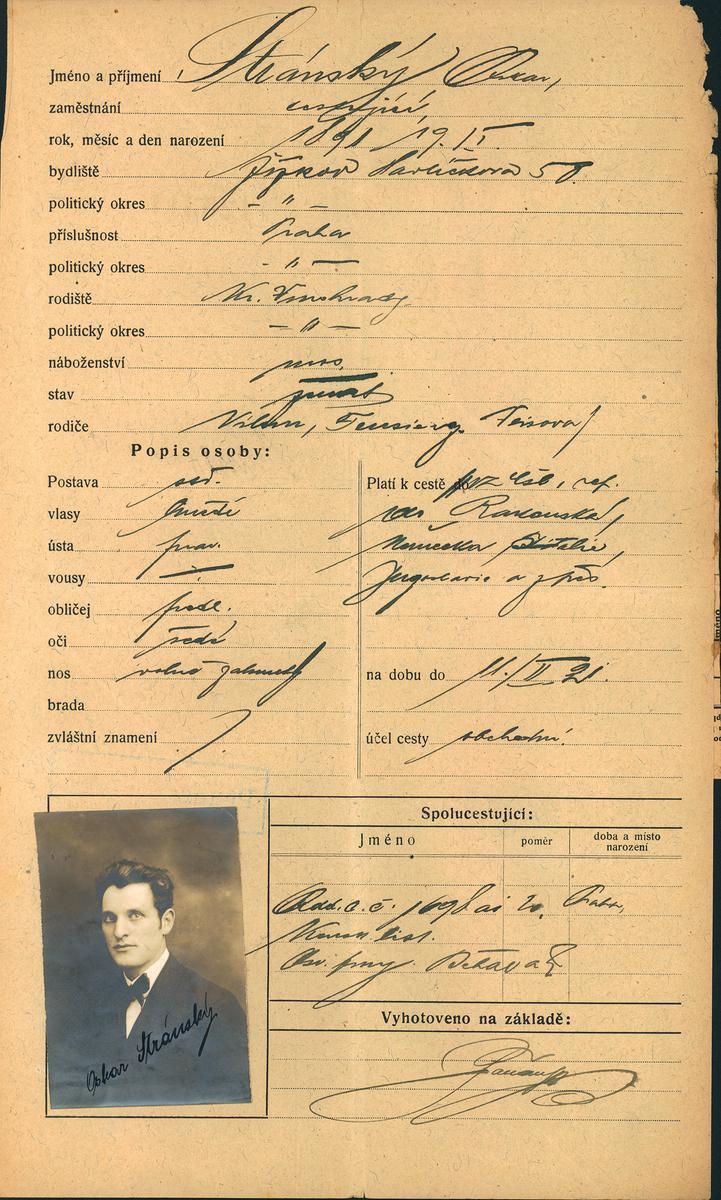 Jméno a příjmení Stránský Oskar,
zaměstnání cestující,
rok, měsíc a den narození 1891 19.II.
bydliště Žižkov Havlíčkova 58.
politický okres – " –
příslušnost Praha
politický okres - " –
rodiště Kr. Vinohrady
politický okres – " –
náboženství mos.
stav ženat
rodiče Vilém,
Popis osoby:
Postava stř.
vlasy hnědé
ústa prav.
vousy
obličej prodl.
oči šedé
nos
brada
zvláštní znamení
Platí k cestě do čsl. rep.
do Rakouska,
Německa Italie,
Jugoslavie a zpět.
na dobu do 11./II 21.
účel cesty obchodní.
Spolucestující:
Jméno poměr doba a místo narození
Praha,
Vyhotoveno na základě:
Oskar Stránský